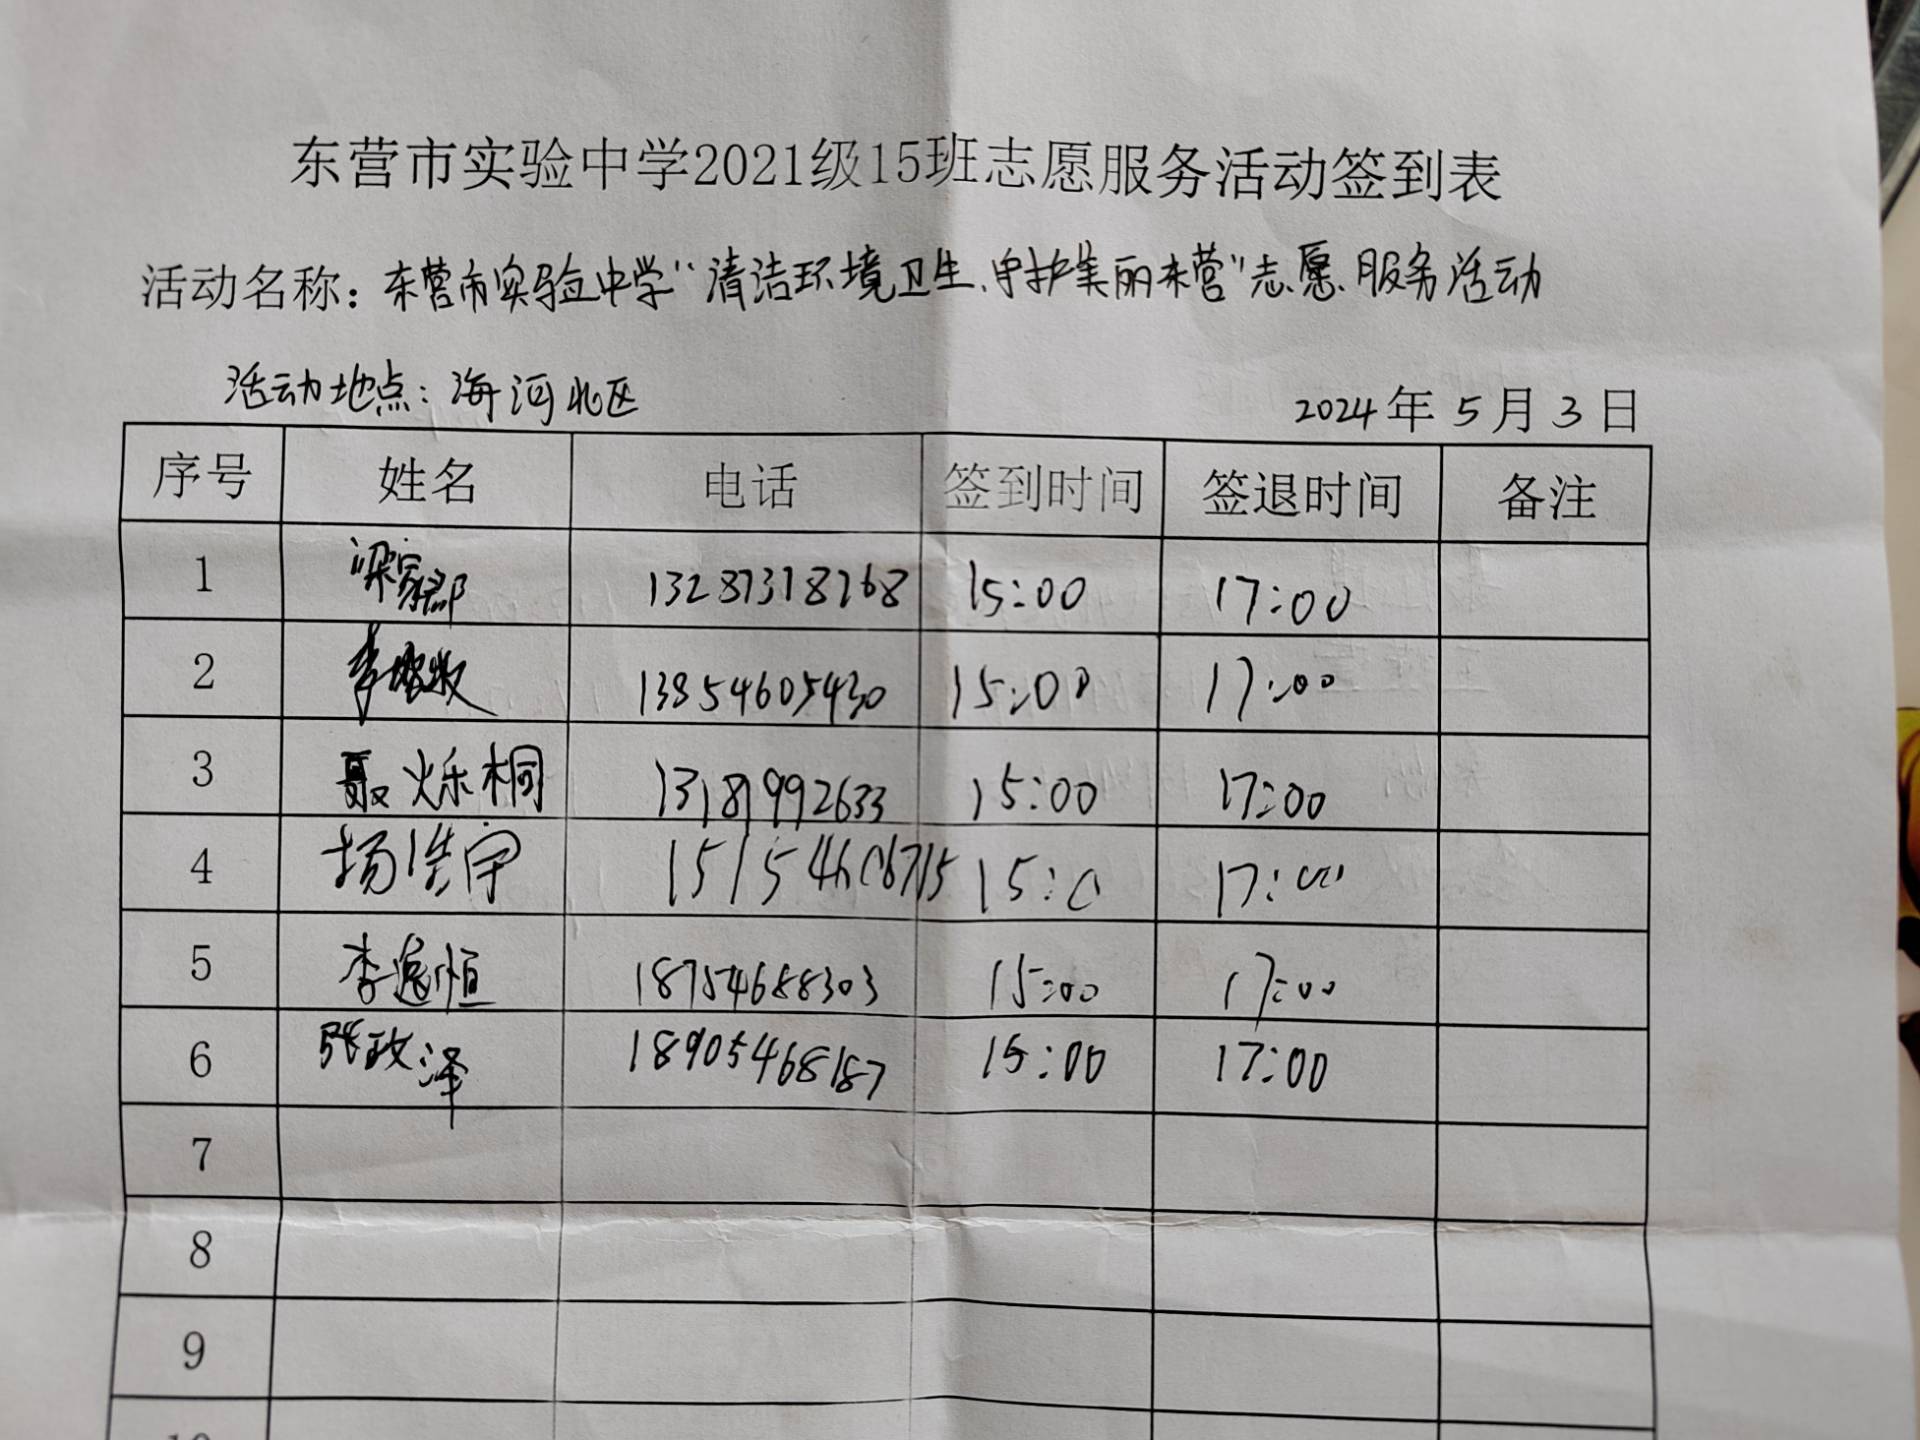 东营市实验中学2021级15班志愿服务活动签到表
活动名称：东营市实验中学“清洁环境卫生、守护美丽东营”志愿服务活动
活动地点：海河北区 2024年5月3日
序号 姓名 电话 签到时间 签退时间 备注
1 梁家郡 13287318768 15:00 17:00
2 李 13854605430 15:00 17:00
3 聂烁桐 13181992633 15:00 17:00
4 杨浩宇 15154606715 15:0 17:00
5 李逸恒 18754688303 15:00 17:00
6 张政泽 18905468187 15:00 17:00
7
8
9
10